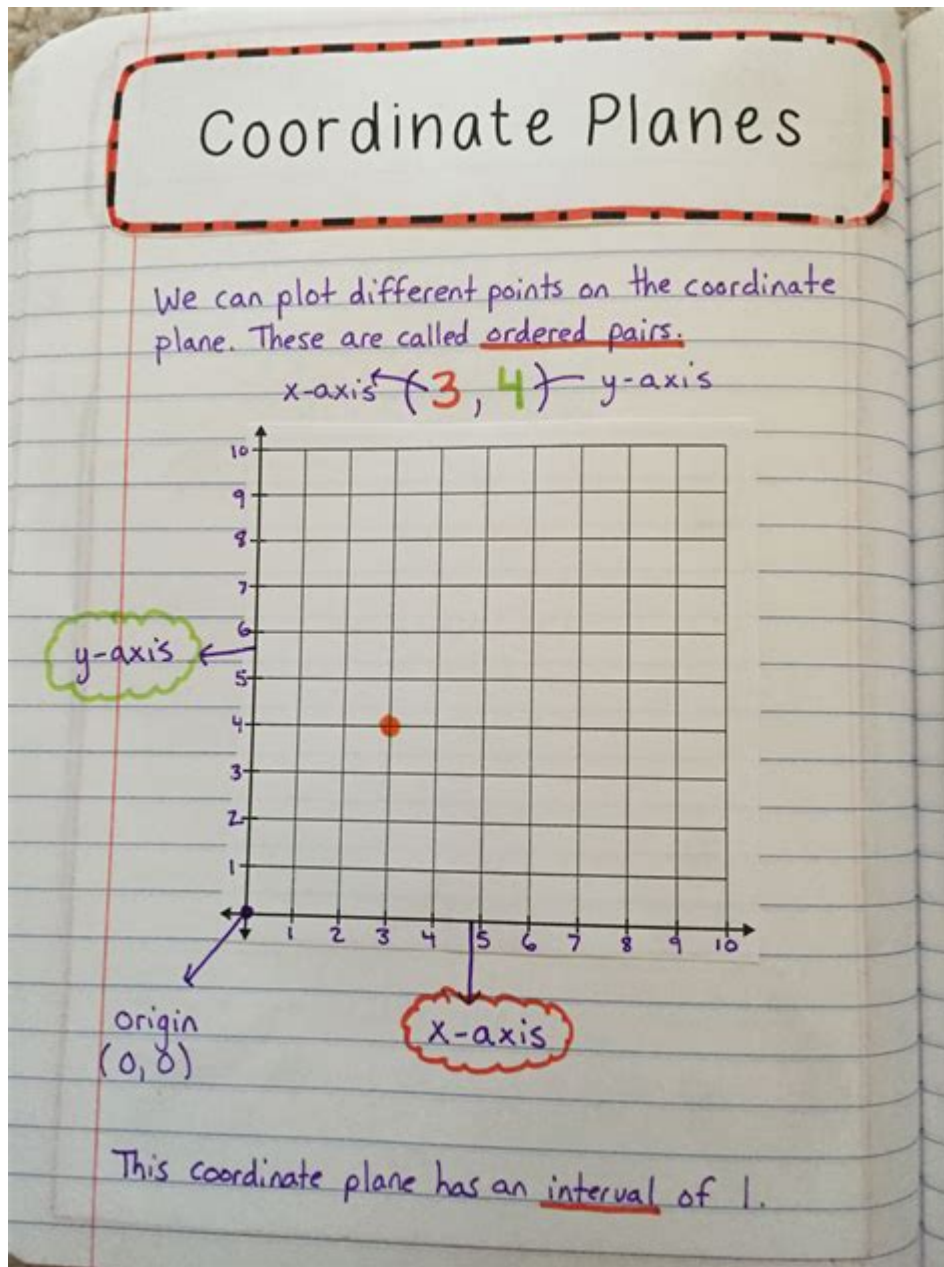 Coordinate Planes
We can plot different points on the coordinate
plane. These are called ordered pairs.
x-axis (3, 4) y-axis
10
9
8
7
6
y-axis
5
4
3
2
1
1 2 3 4 5 6 7 8 9 10
origin
(0,0)
x-axis
This coordinate plane has an interval of 1.